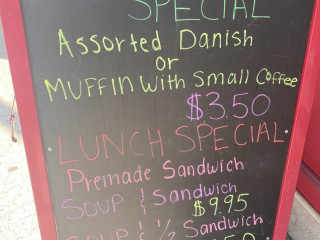 SPECIAL
Assorted Danish
or
MUFFIN with Small Coffee
$3.50
LUNCH SPECIAL
Premade Sandwich
SOUP & Sandwich
$9.95
SOUP & ½ Sandwich